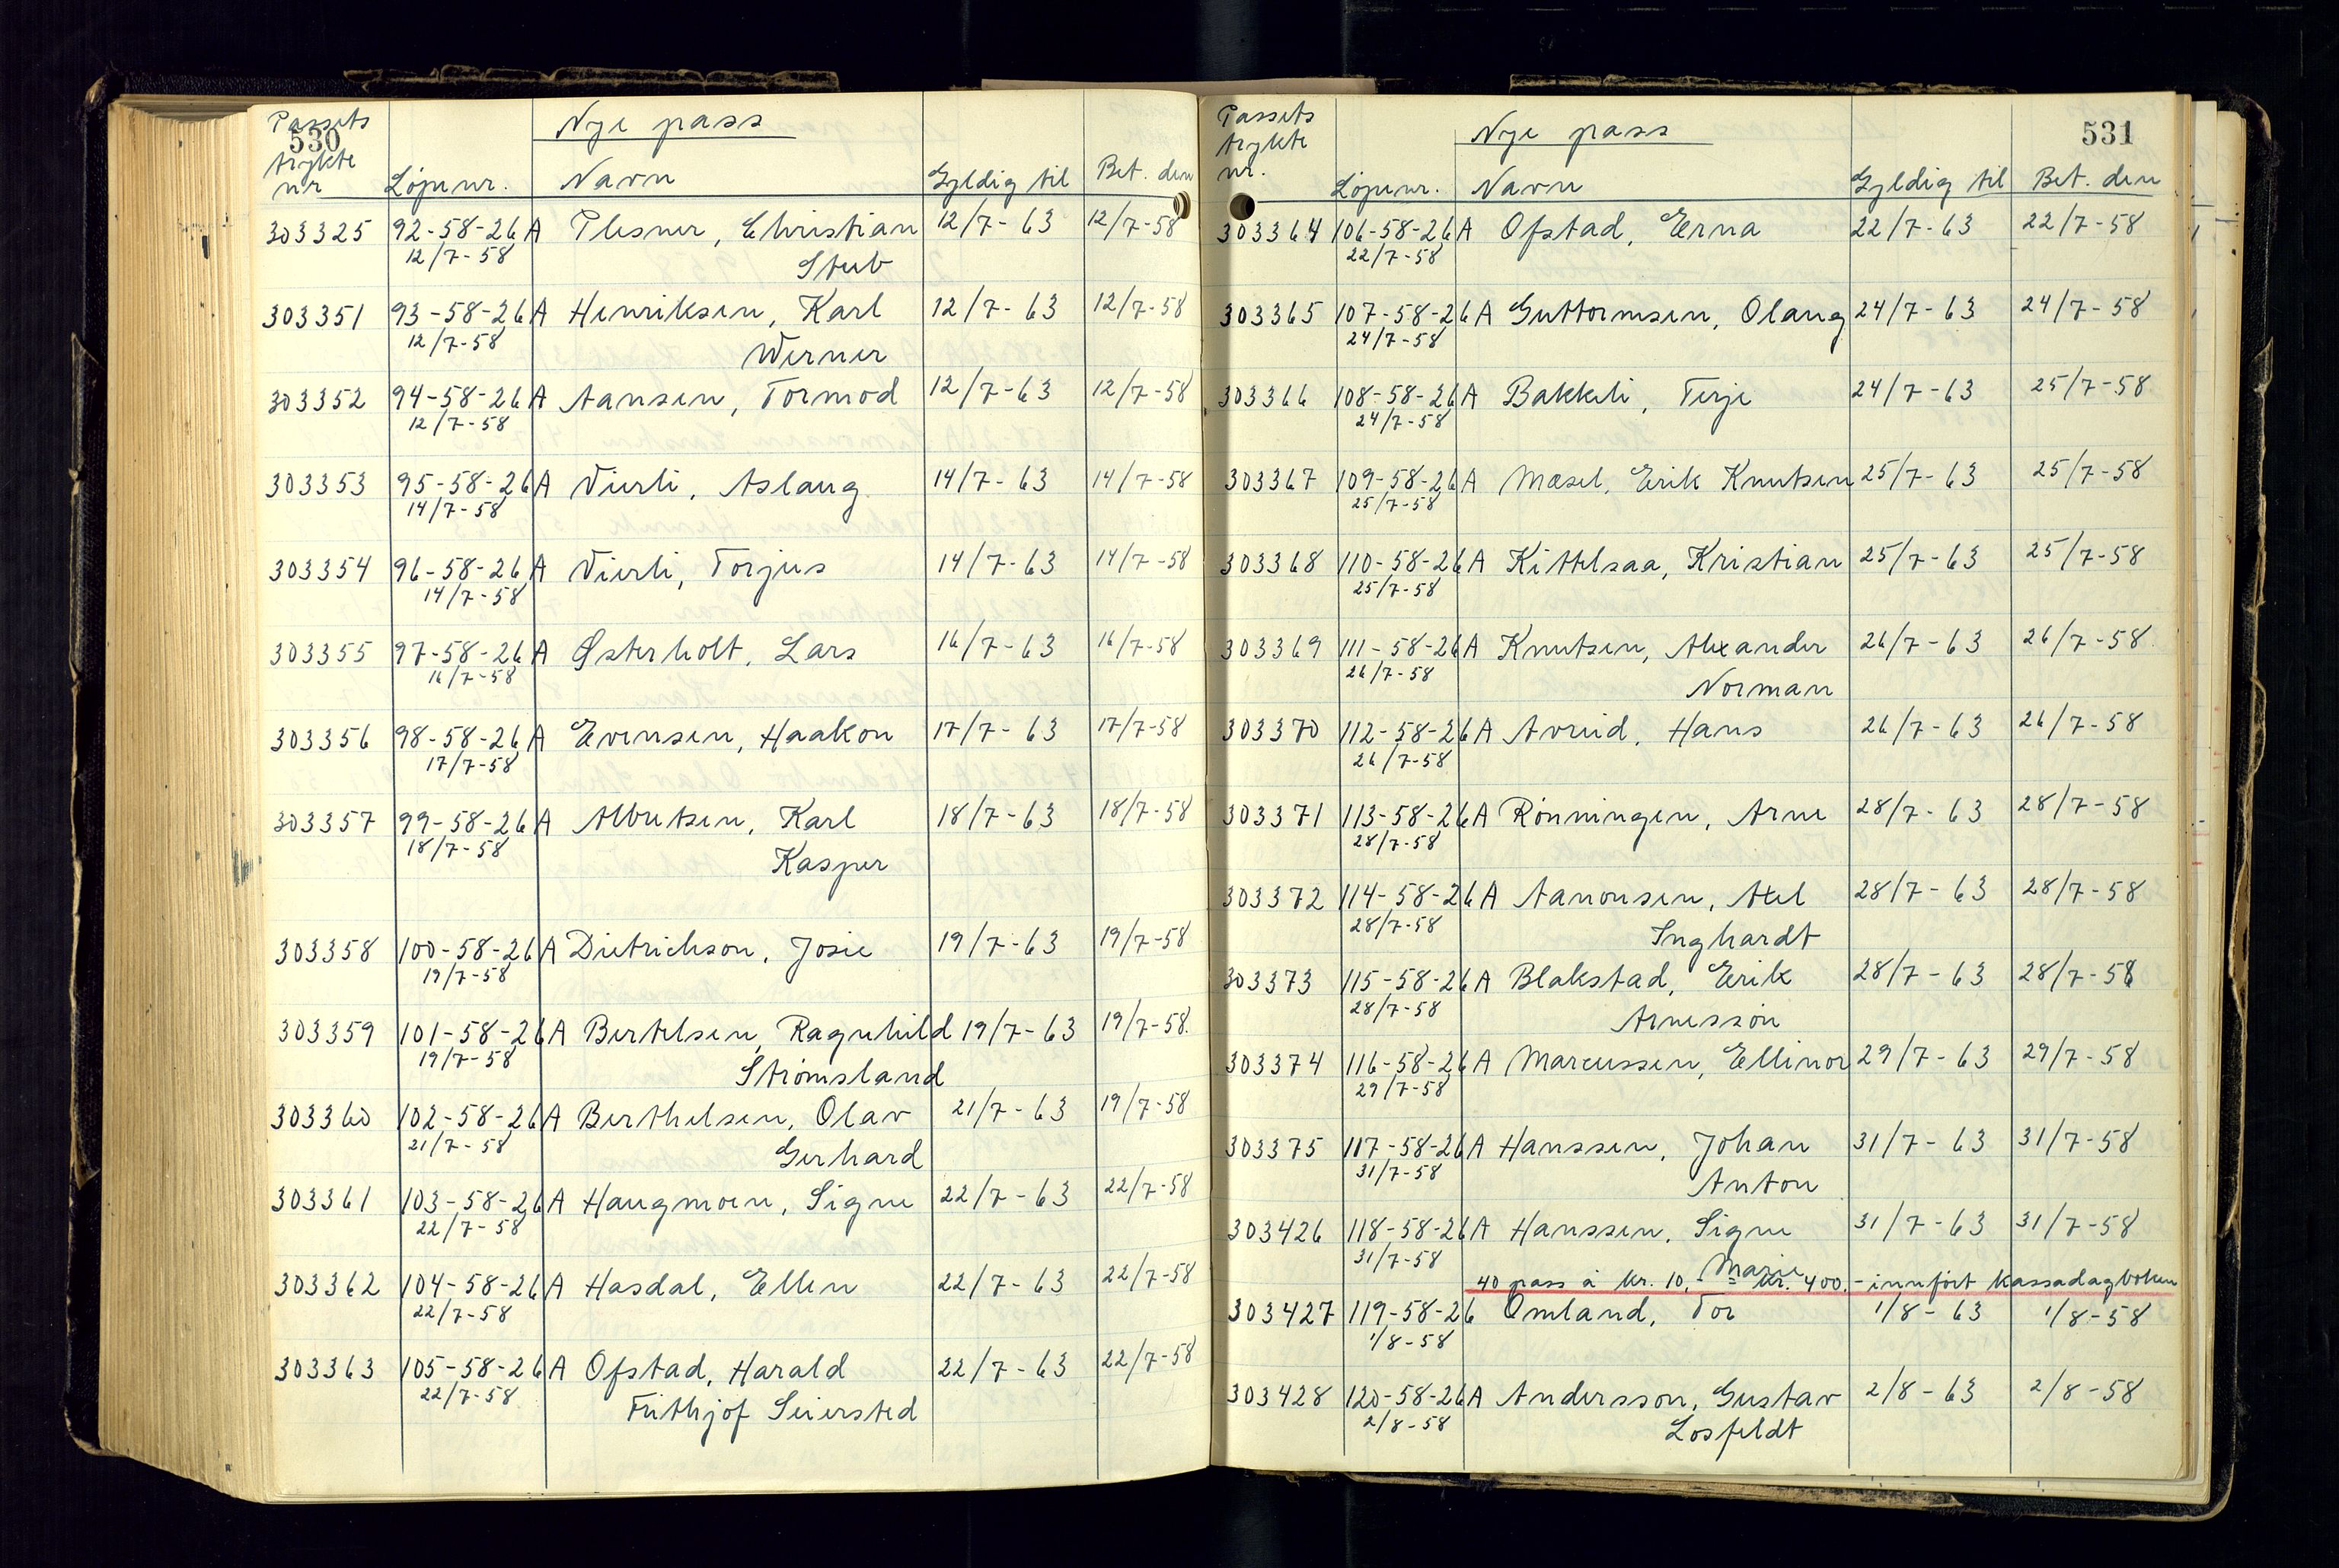 530
Passets trykte nr
Nye pass
Løpenr. Navn Gyldig til Bet. den
303325 92-58-26A Plesner, Christian 12/7-63 12/7-58
12/7-58 Stub
303351 93-58-26A Henriksen, Karl 12/7-63 12/7-58
12/7-58 Werner
303352 94-58-26A Aansen, Tormod 12/7-63 12/7-58
12/7-58
303353 95-58-26A Vierli, Aslaug 14/7-63 14/7-58
14/7-58
303354 96-58-26A Vierli, Torjus 14/7-63 14/7-58
14/7-58
303355 97-58-26A Østerholt, Lars 16/7-63 16/7-58
16/7-58
303356 98-58-26A Evensen, Haakon 17/7-63 17/7-58
17/7-58
303357 99-58-26A Albretsen, Karl 18/7-63 18/7-58
18/7-58 Kasper
303358 100-58-26A Dietrichson, Josie 19/7-63 19/7-58
19/7-58
303359 101-58-26A Bertelsen, Ragnhild 19/7-63 19/7-58.
19/7-58 Strømsland
303360 102-58-26A Berthelsen, Olav 21/7-63 19/7-58
21/7-58 Gerhard
303361 103-58-26A Haugmoen, Signe 22/7-63 22/7-58
22/7-58
303362 104-58-26A Hasdal, Ellen 22/7-63 22/7-58
22/7-58
303363 105-58-26A Ofstad, Harald 22/7-63 22/7-58
22/7-58 Frithjof Seiersted
531
Passets trykte nr.
Nye pass
Løpenr. Navn Gyldig til Bet. den
303364 106-58-26A Ofstad, Erna 22/7-63 22/7-58
22/7-58
303365 107-58-26A Guttormsen, Olaug 24/7-63 24/7-58
24/7-58
303366 108-58-26A Bakkeli, Terje 24/7-63 25/7-58
24/7-58
303367 109-58-26A Mæsel, Erik Knutsen 25/7-63 25/7-58
25/7-58
303368 110-58-26A Kittelsaa, Kristian 25/7-63 25/7-58
25/7-58
303369 111-58-26A Knutsen, Alexander 26/7-63 26/7-58
26/7-58 Norman
303370 112-58-26A Avreid, Hans 26/7-63 26/7-58
26/7-58
303371 113-58-26A Rønningen, Arne 28/7-63 28/7-58
28/7-58
303372 114-58-26A Aanonsen, Axel 28/7-63 28/7-58
28/7-58 Inghardt
303373 115-58-26A Blakstad, Erik 28/7-63 28/7-58
28/7-58 Arnesson
303374 116-58-26A Marcussen, Ellinor 29/7-63 29/7-58
29/7-58
303375 117-58-26A Hanssen, Johan 31/7-63 31/7-58
31/7-58 Anton
303426 118-58-26A Hanssen, Signe 31/7-63 31/7-58
31/7-58 Marie
40 pass à kr. 10,- = kr. 400.- innført kassadagboken
303427 119-58-26 Omland, Tor 1/8-63 1/8-58
1/8-58
303428 120-58-26A Andersson, Gustav 2/8-63 2/8-58
2/8-58 Losfeldt